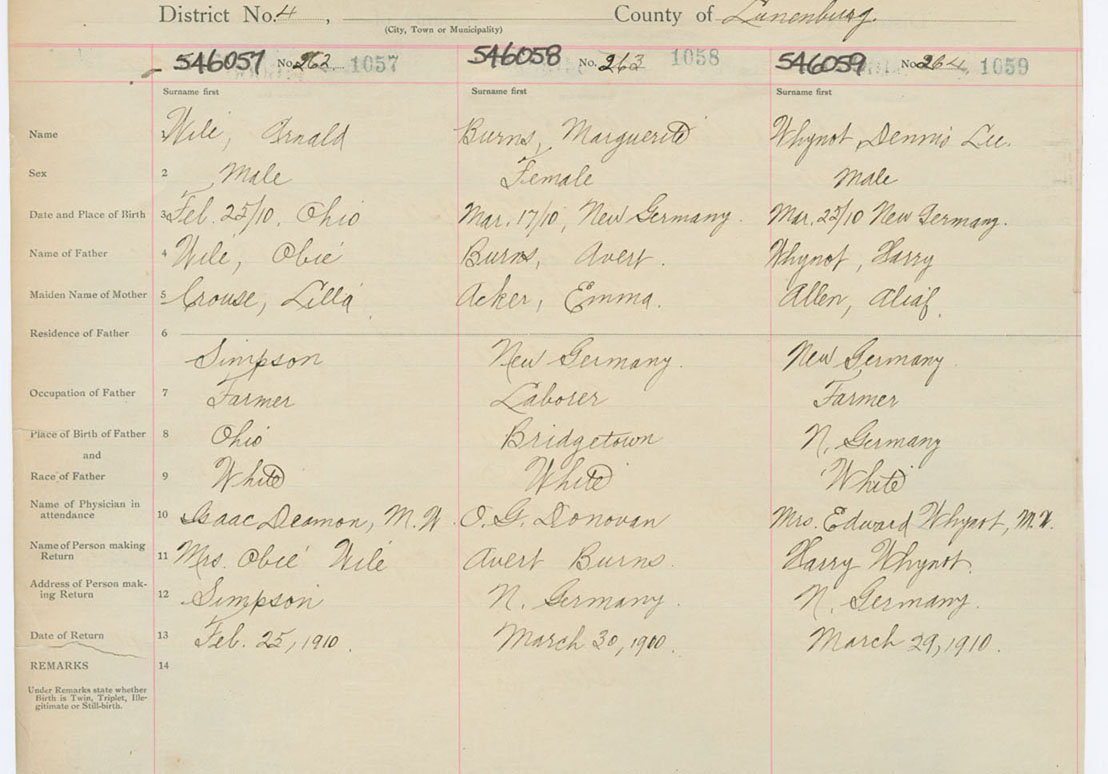 District No. 4 , County of Lunenburg.
(City, Town or Municipality)
546057 No. 262 1057 546058 No. 263 1058 546059 No. 264 1059
Surname first Surname first Surname first
Name 1 Wile, Ornald Burns, Marguerite Whynot, Dennis Lee.
Sex 2 Male Female Male
Date and Place of Birth 3 Feb. 25/10. Ohio Mar. 17/10, New Germany. Mar. 25/10 New Germany.
Name of Father 4 Wile, Obie Burns, Avert. Whynot, Harry
Maiden Name of Mother 5 Crouse, Lilla Acker, Emma. Allen,
Residence of Father 6
Simpson New Germany. New Germany.
Occupation of Father 7 Farmer Laborer Farmer
Place of Birth of Father 8 Ohio Bridgetown N. Germany
and
Race of Father 9 White White White
Name of Physician in
attendance 10 Isaac Deamon, M.W. O. G. Donovan Mrs. Edward Whynot, M.W.
Name of Person making
Return 11 Mrs. Obie Wile Avert Burns. Harry Whynot.
Address of Person mak-
ing Return 12 Simpson N. Germany. N. Germany.
Date of Return 13 Feb. 25, 1910. March 30, 1910. March 29, 1910.
REMARKS 14
Under Remarks state whether
Birth is Twin, Triplet, Ille-
gitimate or Still-birth.